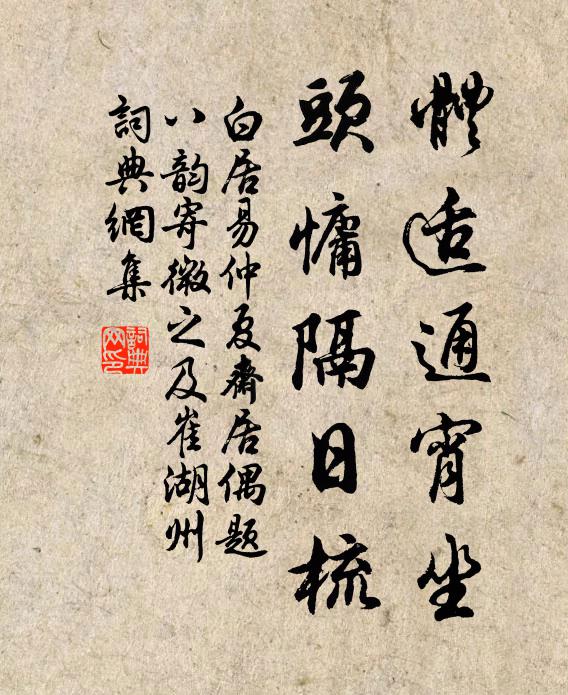 體适通宵坐
頭慵隔日梳
白居易仲夏齋居偶題
八韵寄微之及崔湖州
詞典網集
詞典网印